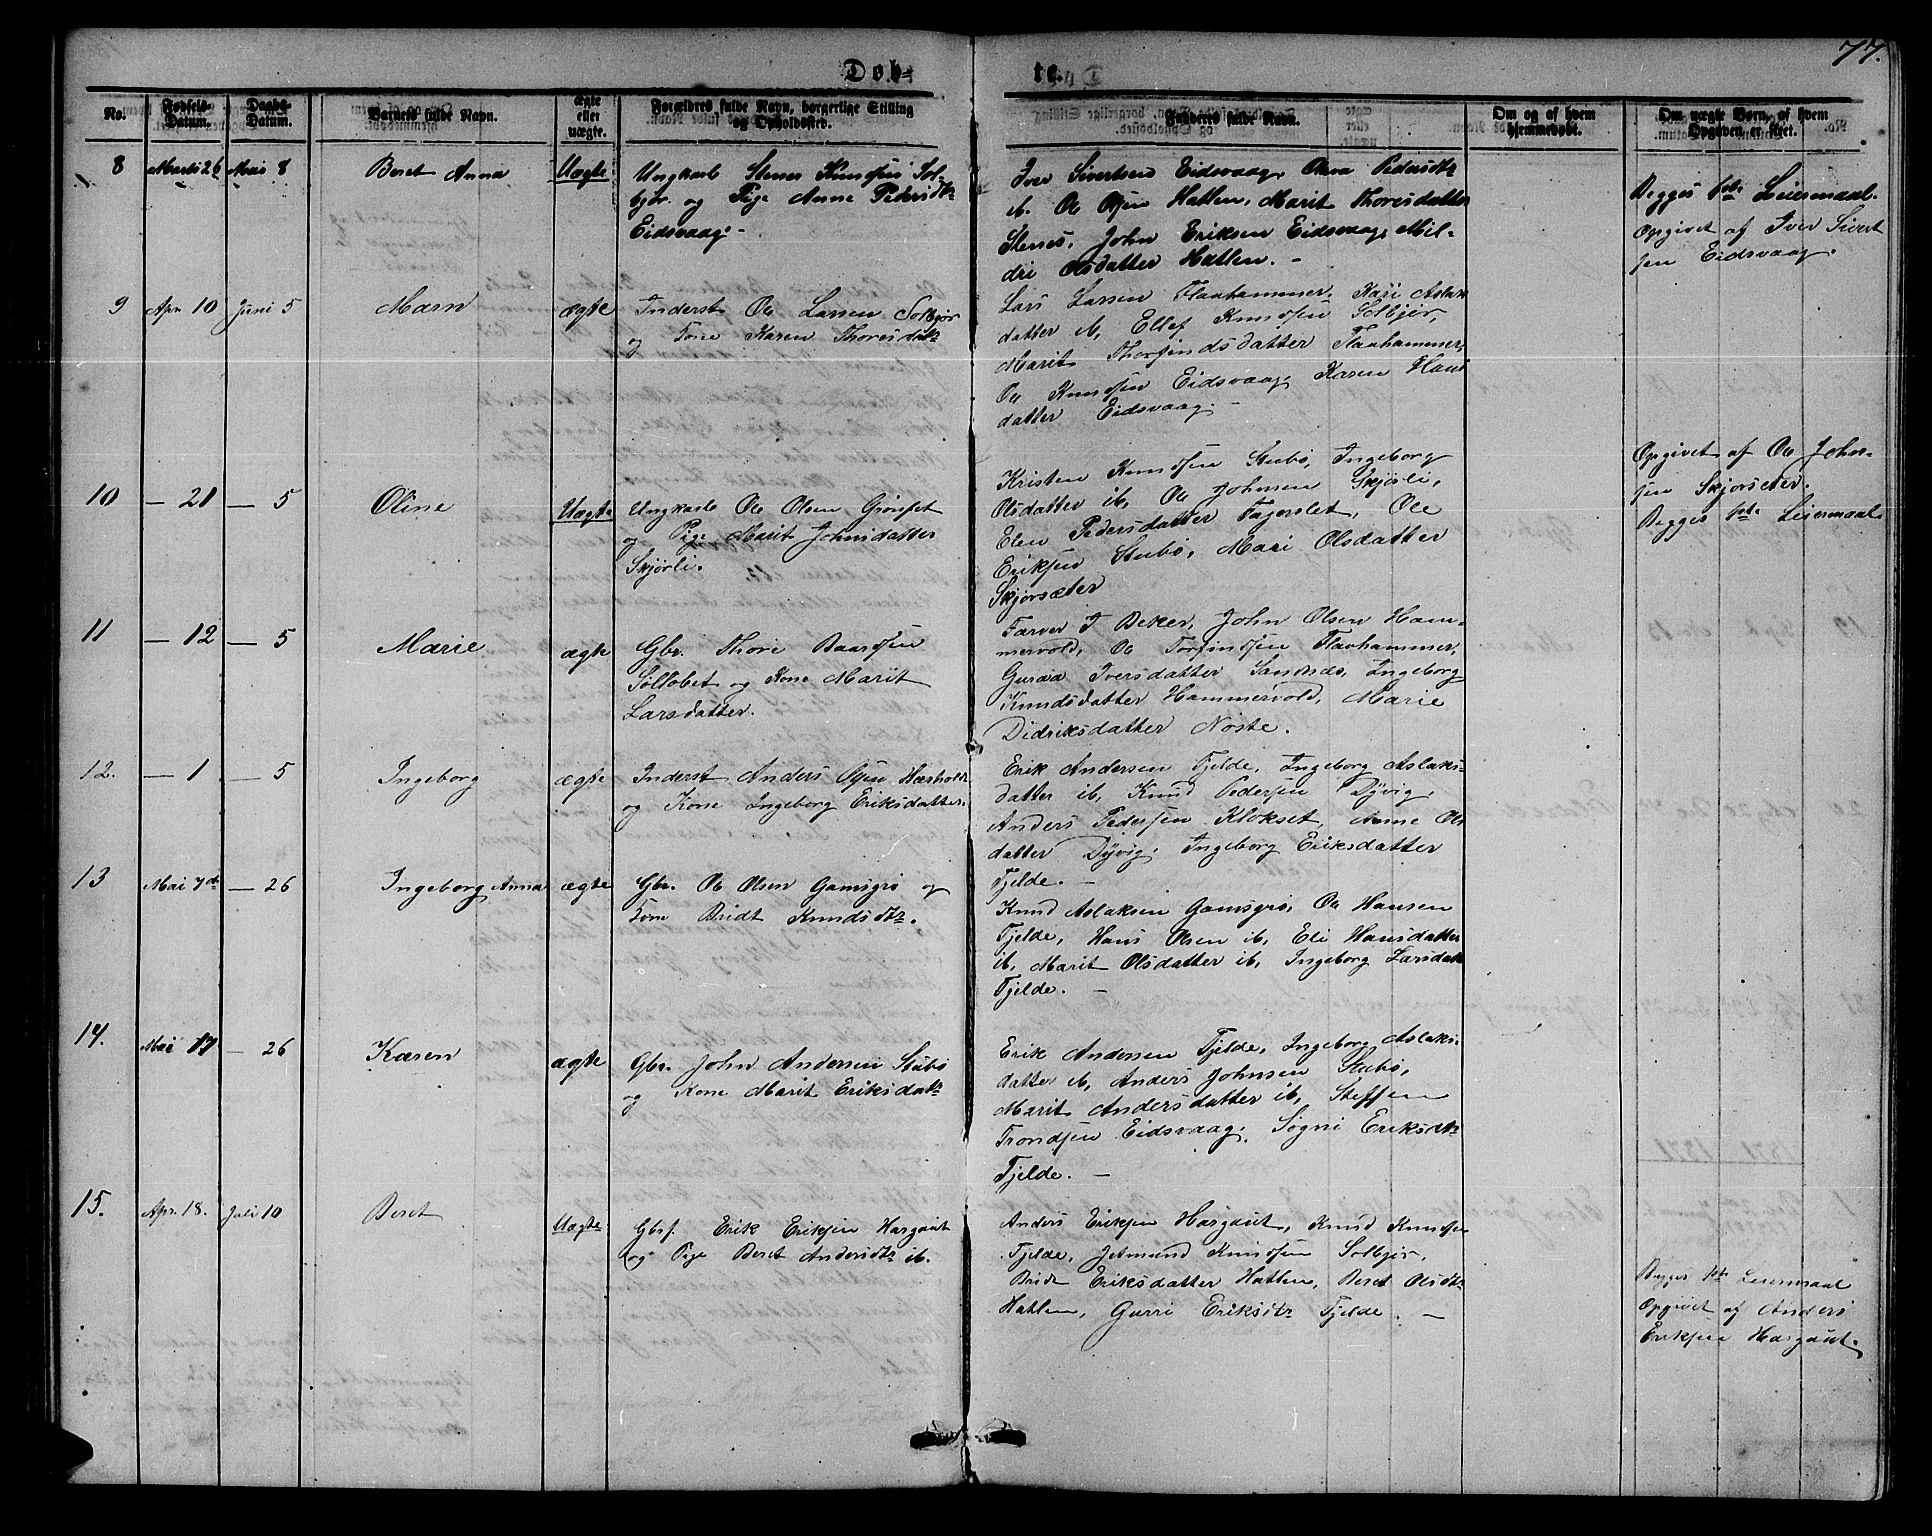 77.
Døb-
te.
No.
Fødsels-
Datum.
Daabs-
Datum.
Barnets fulde Navn.
ægte
eller
uægte.
Forældres fulde Navn, borgerlige Stilling
og Opholdssted.
Fadderes fulde Navn.
Om og af hvem
hjemmedøbt.
Om uægte Børn, af hvem
Opgaven er skeet.
8 Marts 26 Mai 8 Beret Anna Uægte
Ungkarl Knudsen Sol-
bjør. og Pige Anne Pedersdtr
Eidsvaag. -
Iver Sivertsen Eidsvaag, Pedersdtr
ib. Ole Hatlen, Marit Thoresdatter
Stenes, John Eriksen Eidsvaag, Mil-
dri Olsdatter Hatlen. -
Begges 1ste Leiermaal.
Opgivet af Iver Sivert
sen Eidsvaag.
9 Apr. 10 Juni 5 Marn ægte
Inderst Ole Larsen Solbjør
og Kone Karen Thoresdatr
Lars Larsen Flaahammer, Kari Aslaks
datter ib, Ellef Knudsen Solbjør,
Marit Thorfindsdatter Flaahammer,
Ole Knudsen Eidsvaag, Karen Hans
datter Eidsvaag. -
10 — 21 — 5 Oline Uægte
Ungkarl Ole Olsen Grønset
og Pige Marit Johnsdatter
Skjørli.
Kristen Knudsen Stubø, Ingeborg
Olsdatter ib, Ole Johnsen Skjørli,
Elen Pedersdatter Fagerslet, Ole
Eriksen Stubø, Mari Olsdatter
Skjørsæter
Opgivet af Ole John-
sen Skjørseter.
Begges 1ste Leiermaal
11 — 12 — 5 Marie ægte
Gbr. Thore Baardsen
Sollobet og Kone Marit
Larsdatter.
Farver I Beker, John Olsen Ham-
mervold, Ole Torfinsen Flaahammer,
Guraa Iversdatter Sandnæs, Ingeborg
Knudsdatter Hammervold, Marie
Didriksdatter Nøste.
12. — 1 — 5 Ingeborg ægte
Inderst Anders
og Kone Ingeborg Eriksdatter.
Erik Andersen Fjelde, Ingeborg Aslaks-
datter ib, Knud Pedersen Dyvig,
Anders Pedersen Klokset, Anne Ols
datter Dyvig, Ingeborg Eriksdatter
Fjelde. -
13 Mai 7de — 26 Ingeborg Anna ægte
Gbr. Ole Olsen Gamsgrø og
Kone Bridt Knudsdtr.
Knud Aslaksen Gamsgrø, Ole Hansen
Fjelde, Hans Olsen ib, Eli Hansdatter
ib, Marit Olsdatter ib, Ingeborg Larsdatr
Fjelde. -
14. Mai 17 — 26 Karen ægte
Gbr. John Andersen Stubø
og Kone Marit Eriksdatr
Erik Andersen Fjelde, Ingeborg Aslaks-
datter ib, Anders Johnsen Stubø,
Marit Andersdatter ib, Steffen
Trondsen Eidsvaag, Søgni Eriksdtr
Fjelde. -
15. Apr. 18. Juli 10 Beret Uægte
Gbrs. Erik Eriksen Hargaut
og Pige Beret Andersdtr ib.
Anders Eriksen Hargaut, Knud Knudsen
Fjelde, Jetmund Knudsen Solbjør,
Bridt Eriksdatter Hatlen, Beret Olsdtr
Hatlen, Gurri Eriksdtr Fjelde. -
Begges 1ste Leiermaal
Opgivet af Anders
Eriksen Hargaut.